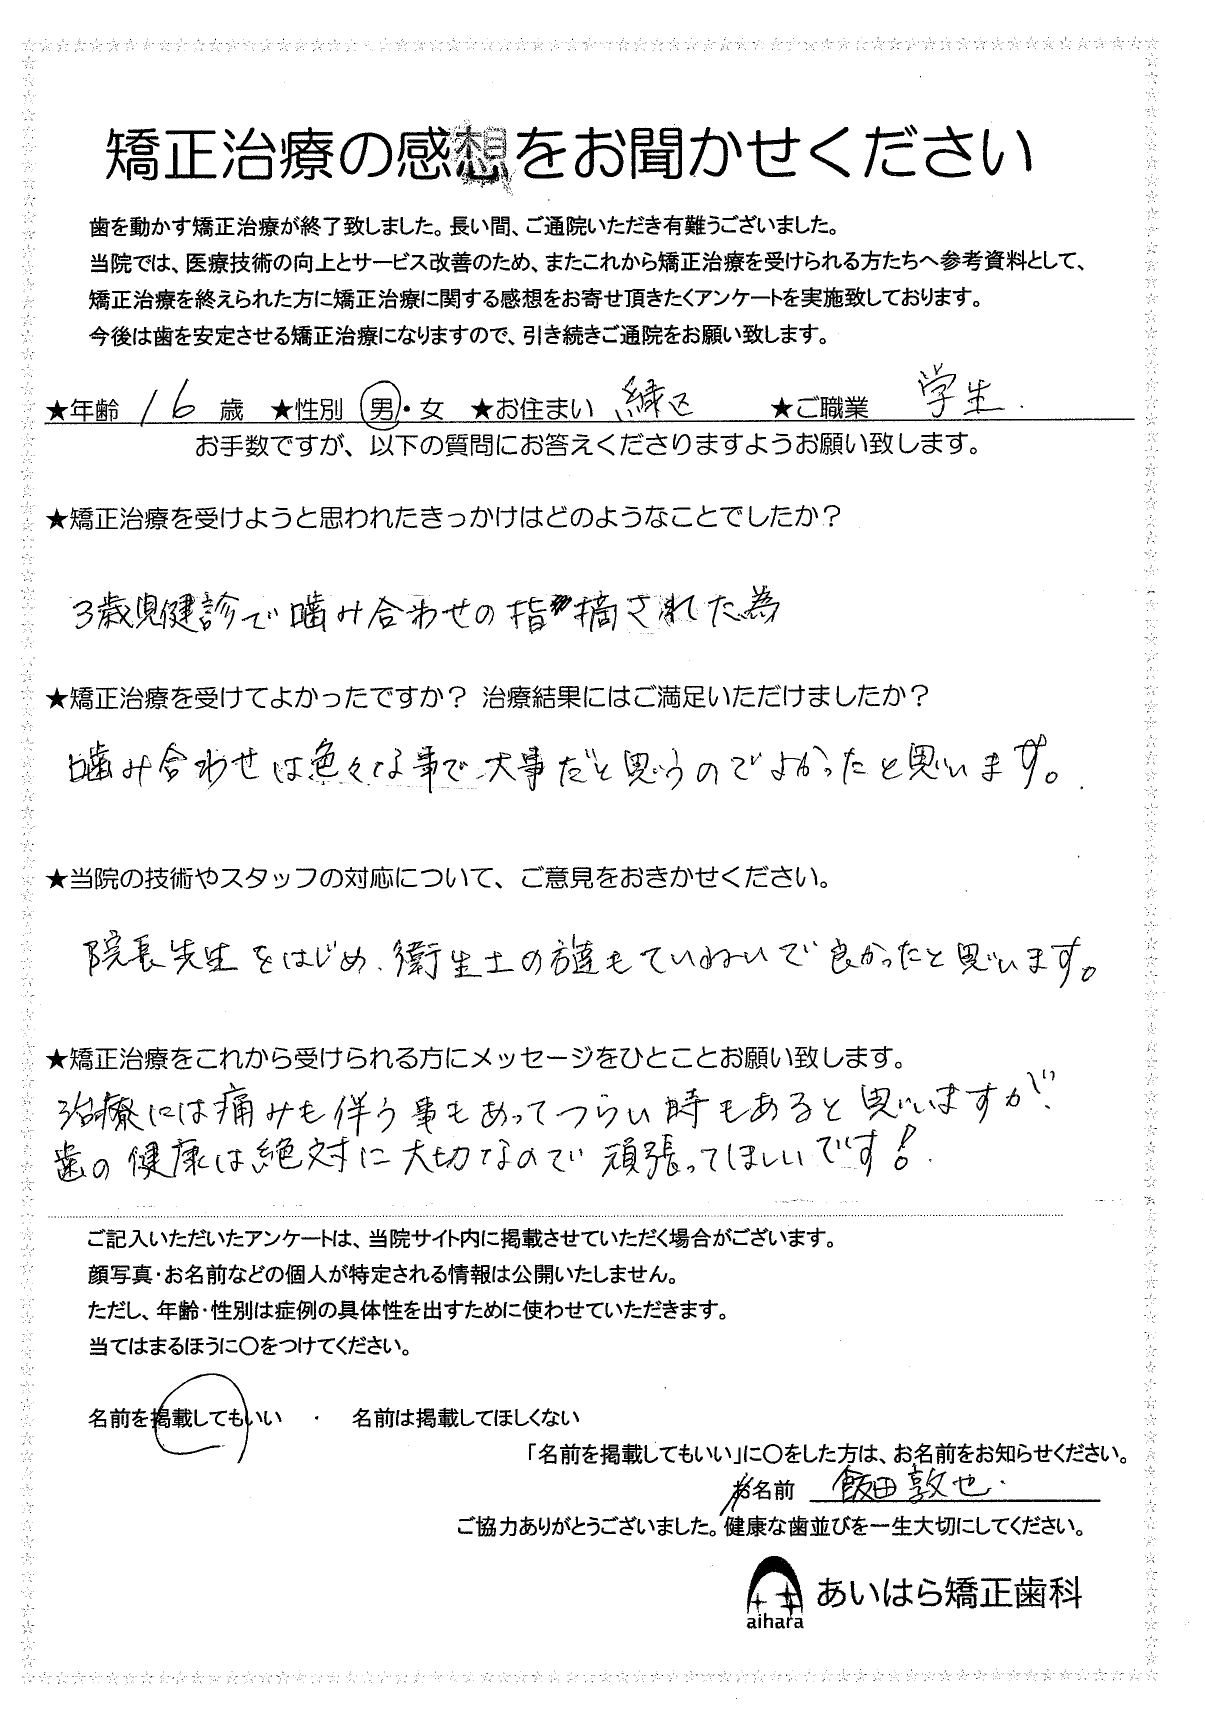 矯正治療の感想をお聞かせください
歯を動かす矯正治療が終了致しました。長い間、ご通院いただき有難うございました。
当院では、医療技術の向上とサービス改善のため、またこれから矯正治療を受けられる方たちへ参考資料として、
矯正治療を終えられた方に矯正治療に関する感想をお寄せ頂きたくアンケートを実施致しております。
今後は歯を安定させる矯正治療になりますので、引き続きご通院をお願い致します。
★年齢 16 歳 ★性別 男・女 ★お住まい 緑区 ★ご職業 学生.
お手数ですが、以下の質問にお答えくださりますようお願い致します。
★矯正治療を受けようと思われたきっかけはどのようなことでしたか？
3歳児健診で噛み合わせの指摘された為
★矯正治療を受けてよかったですか？ 治療結果にはご満足いただけましたか？
噛み合わせは色々な事で大事だと思うのでよかったと思います。
★当院の技術やスタッフの対応について、ご意見をおきかせください。
院長先生をはじめ、衛生士の方達もていねいで良かったと思います。
★矯正治療をこれから受けられる方にメッセージをひとことお願い致します。
治療には痛みも伴う事もあってつらい時もあると思いますが、
歯の健康は絶対に大切なので頑張ってほしいです！
ご記入いただいたアンケートは、当院サイト内に掲載させていただく場合がございます。
顔写真・お名前などの個人が特定される情報は公開いたしません。
ただし、年齢・性別は症例の具体性を出すために使わせていただきます。
当てはまるほうに〇をつけてください。
名前を掲載してもいい ・ 名前は掲載してほしくない
「名前を掲載してもいい」に〇をした方は、お名前をお知らせください。
お名前 飯田敦也
ご協力ありがとうございました。健康な歯並びを一生大切にしてください。
あいはら矯正歯科
aihara